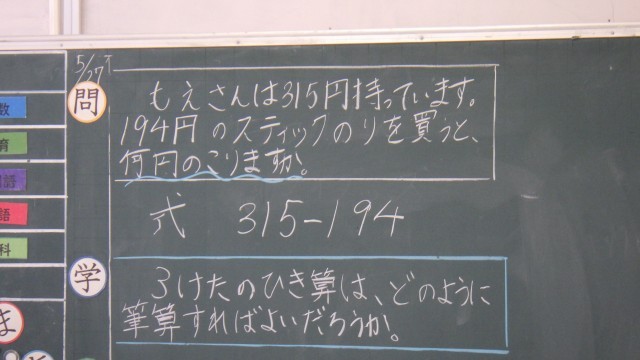 5/27
問
もえさんは315円持っています。
194円のスティックのりを買うと、
何円のこりますか。
式 315-194
学
3けたのひき算は、どのように
筆算すればよいだろうか。
数
育
語
科
ま